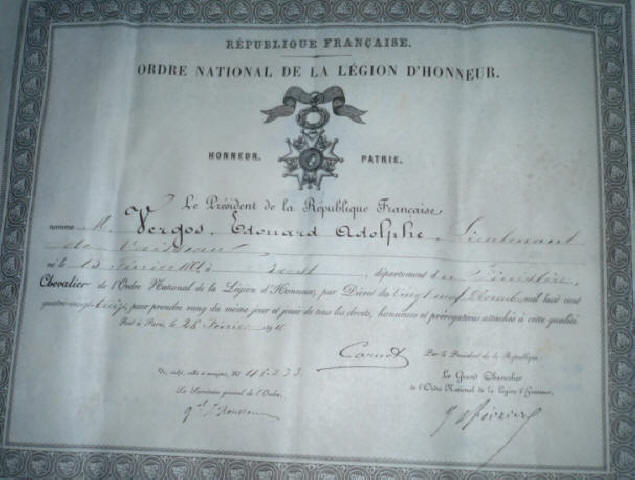 RÉPUBLIQUE FRANÇAISE.
ORDRE NATIONAL DE LA LÉGION D'HONNEUR.
HONNEUR. PATRIE.
Le Président de la République Française,
nomme M Vergos, Édouard Adolphe, Lieutenant
de Vaisseau
né le 13 février à Brest, département du Finistère,
Chevalier de l'Ordre National de la Légion d'Honneur, par Décret du vingt neuf Décembre mil huit cent
quatre-vingt pour prendre rang du même jour et jouir de tous les droits, honneurs et prérogatives attachés à cette qualité.
Fait à Paris, le 28 Février
Carnot
Par le Président de la République,
Vu, scellé et enregistré, N°
Le Grand Chancelier
Le Secrétaire général de l'Ordre,
de l'Ordre National de la Légion d'Honneur,